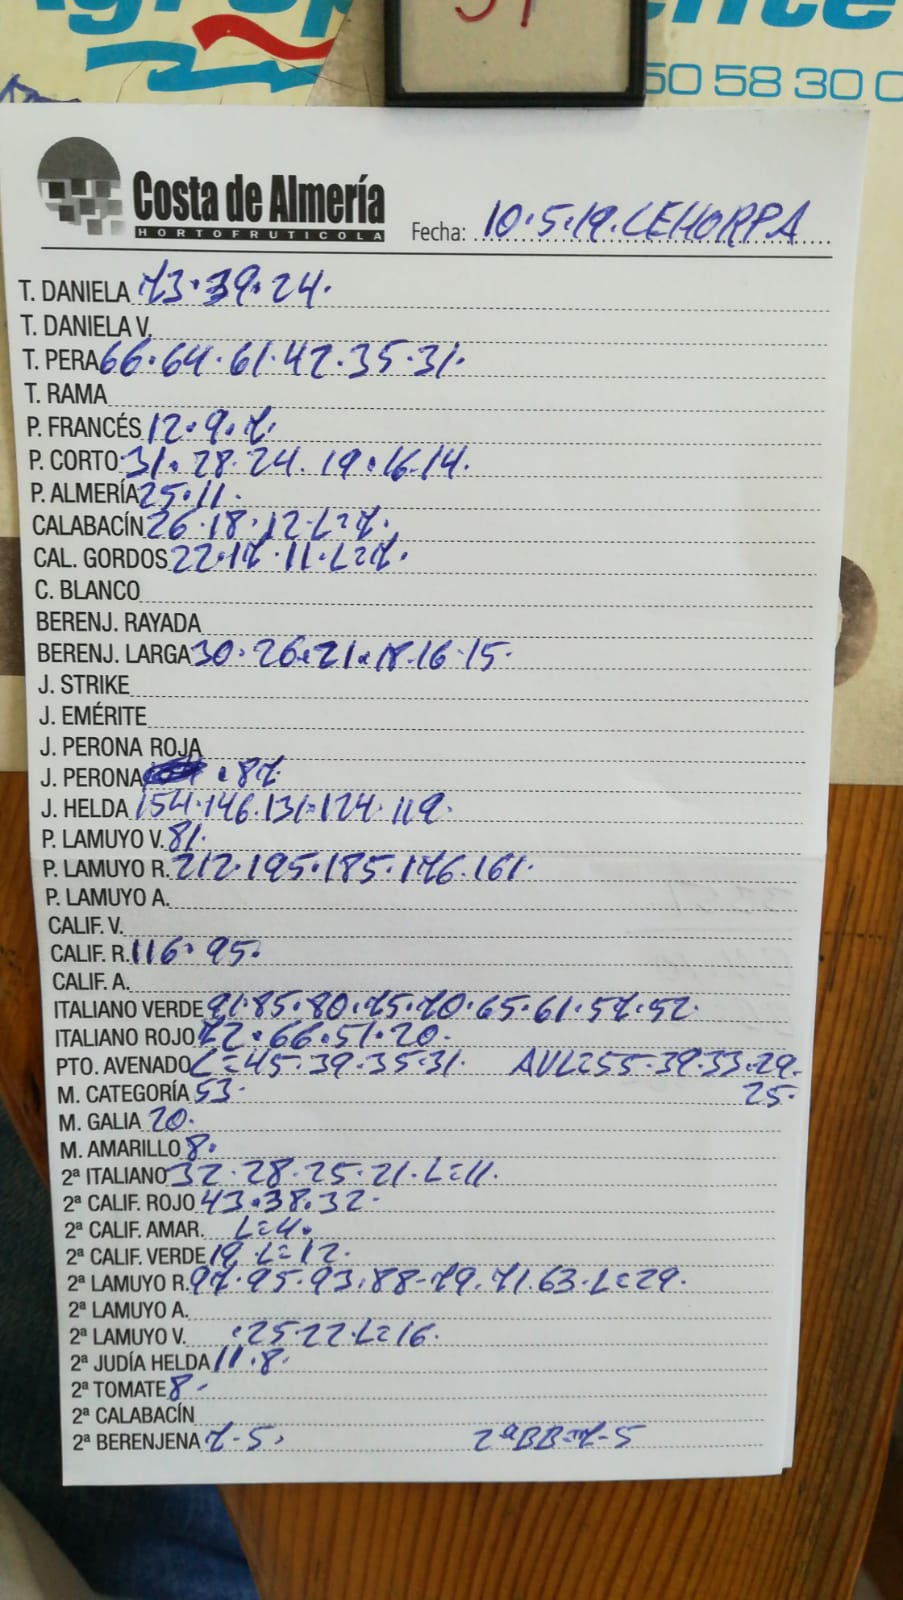 50 58 30 0
Costa de Almería
HORTOFRUTICOLA
Fecha: 10·5·19·CEHORPA
T. DANIELA 73·39·24·
T. DANIELA V.
T. PERA 66·64·61·42·35·31·
T. RAMA
P. FRANCÉS 12·9·7·
P. CORTO 31·28·24·19·16·14·
P. ALMERÍA 25·11·
CALABACÍN 26·18·12·L=7·
CAL. GORDOS 22·17·11·L=7·
C. BLANCO
BERENJ. RAYADA
BERENJ. LARGA 30·26·21·18·16·15·
J. STRIKE
J. EMÉRITE
J. PERONA ROJA
J. PERONA ·87·
J. HELDA 154·146·131·124·119·
P. LAMUYO V. 81·
P. LAMUYO R. 212·195·185·176·161·
P. LAMUYO A.
CALIF. V.
CALIF. R. 116·95·
CALIF. A.
ITALIANO VERDE 91·85·80·75·70·65·61·57·52·
ITALIANO ROJO 72·66·51·20·
PTO. AVENADO L=45·39·35·31· AVL=55·39·33·29·
M. CATEGORÍA 53· 25·
M. GALIA 20·
M. AMARILLO 8·
2ª ITALIANO 32·28·25·21·L=11·
2ª CALIF. ROJO 43·38·32·
2ª CALIF. AMAR. L=4·
2ª CALIF. VERDE 19·L=12·
2ª LAMUYO R. 97·95·93·88-79·71·63·L=29·
2ª LAMUYO A.
2ª LAMUYO V. ·25·22·L=16·
2ª JUDÍA HELDA 11·8·
2ª TOMATE 8·
2ª CALABACÍN
2ª BERENJENA 7-5· 2ªBB=7-5